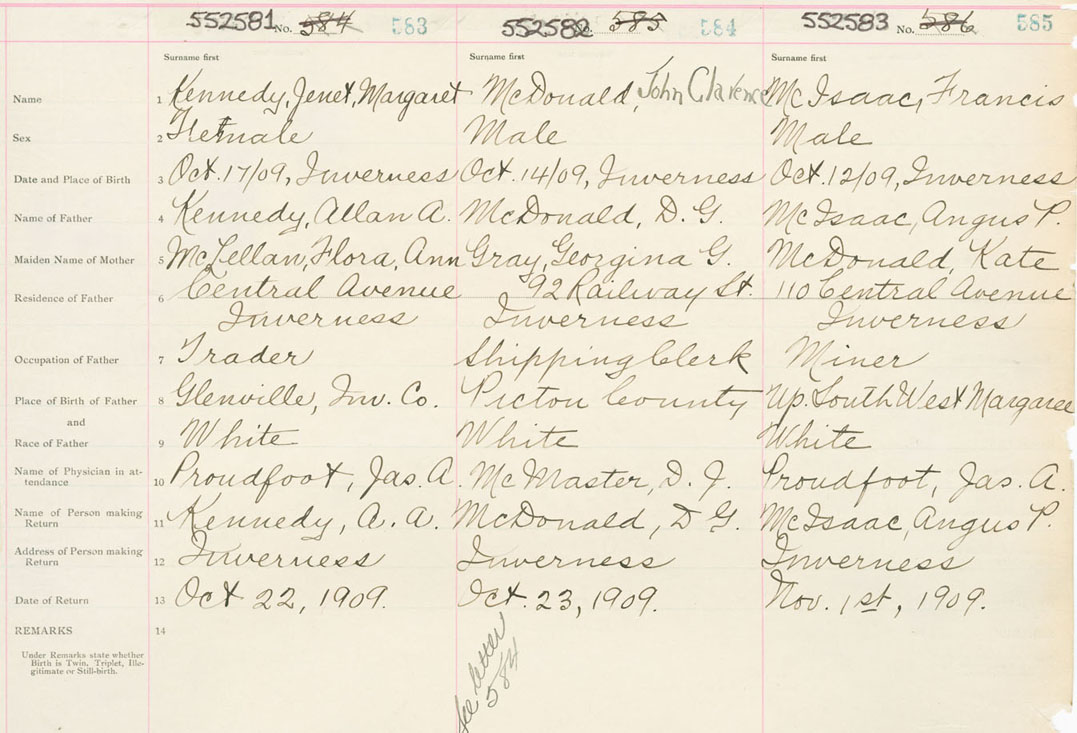 552581 No. 584 583 552582 No. 585 584 552583 No. 586 585
Surname first Surname first Surname first
Name 1 Kennedy, Jenet, Margaret McDonald, John Clarence McIsaac, Francis
Sex 2 Female Male Male
Date and Place of Birth 3 Oct. 17/09, Inverness Oct. 14/09, Inverness Oct. 12/09, Inverness
Name of Father 4 Kennedy, Allan A. McDonald, D. G. McIsaac, Angus P.
Maiden Name of Mother 5 McLellan, Flora, Ann Gray, Georgina G. McDonald, Kate
Residence of Father 6 Central Avenue 92 Railway St. 110 Central Avenue
Inverness Inverness Inverness
Occupation of Father 7 Trader Shipping Clerk Miner
Place of Birth of Father 8 Glenville, Inv. Co. Pictou County Up. South West Margaree
and
Race of Father 9 White White White
Name of Physician in at-
tendance 10 Proudfoot, Jas. A. McMaster, D. J. Proudfoot, Jas. A.
Name of Person making
Return 11 Kennedy, A. A. McDonald, D G. McIsaac, Angus P.
Address of Person making
Return 12 Inverness Inverness Inverness
Date of Return 13 Oct 22, 1909. Oct. 23, 1909. Nov. 1st, 1909.
REMARKS 14
Under Remarks state whether
Birth is Twin, Triplet, Ille-
gitimate or Still-birth.
See letter
584